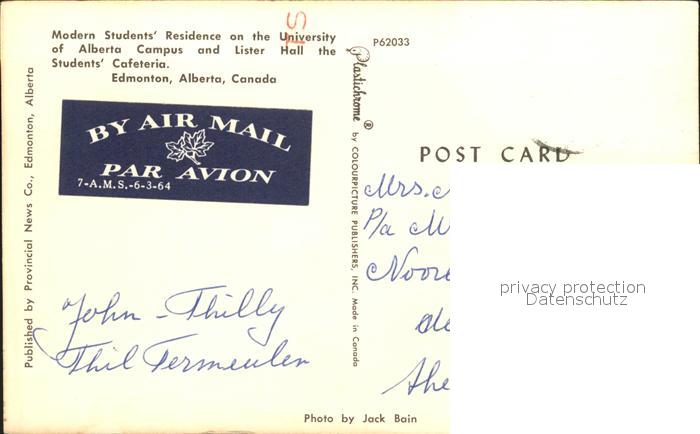 Modern Students' Residence on the University
of Alberta Campus and Lister Hall the
Students' Cafeteria.
Edmonton, Alberta, Canada
P62033
BY AIR MAIL
PAR AVION
7-A.M.S.-6-3-64
Published by Provincial News Co., Edmonton, Alberta
Plastichrome ® by COLOURPICTURE PUBLISHERS, INC. Made in Canada
POST CARD
Mrs.
P/a
privacy protection
Datenschutz
John - Thilly
Thil Termeulen
Photo by Jack Bain